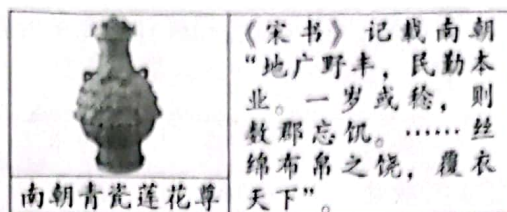 南朝青瓷莲花尊
《宋书》记载南朝
“地广野丰，民勤本
业。一岁或稔，则
数郡忘饥。……丝
绵布帛之饶，覆衣
天下”。